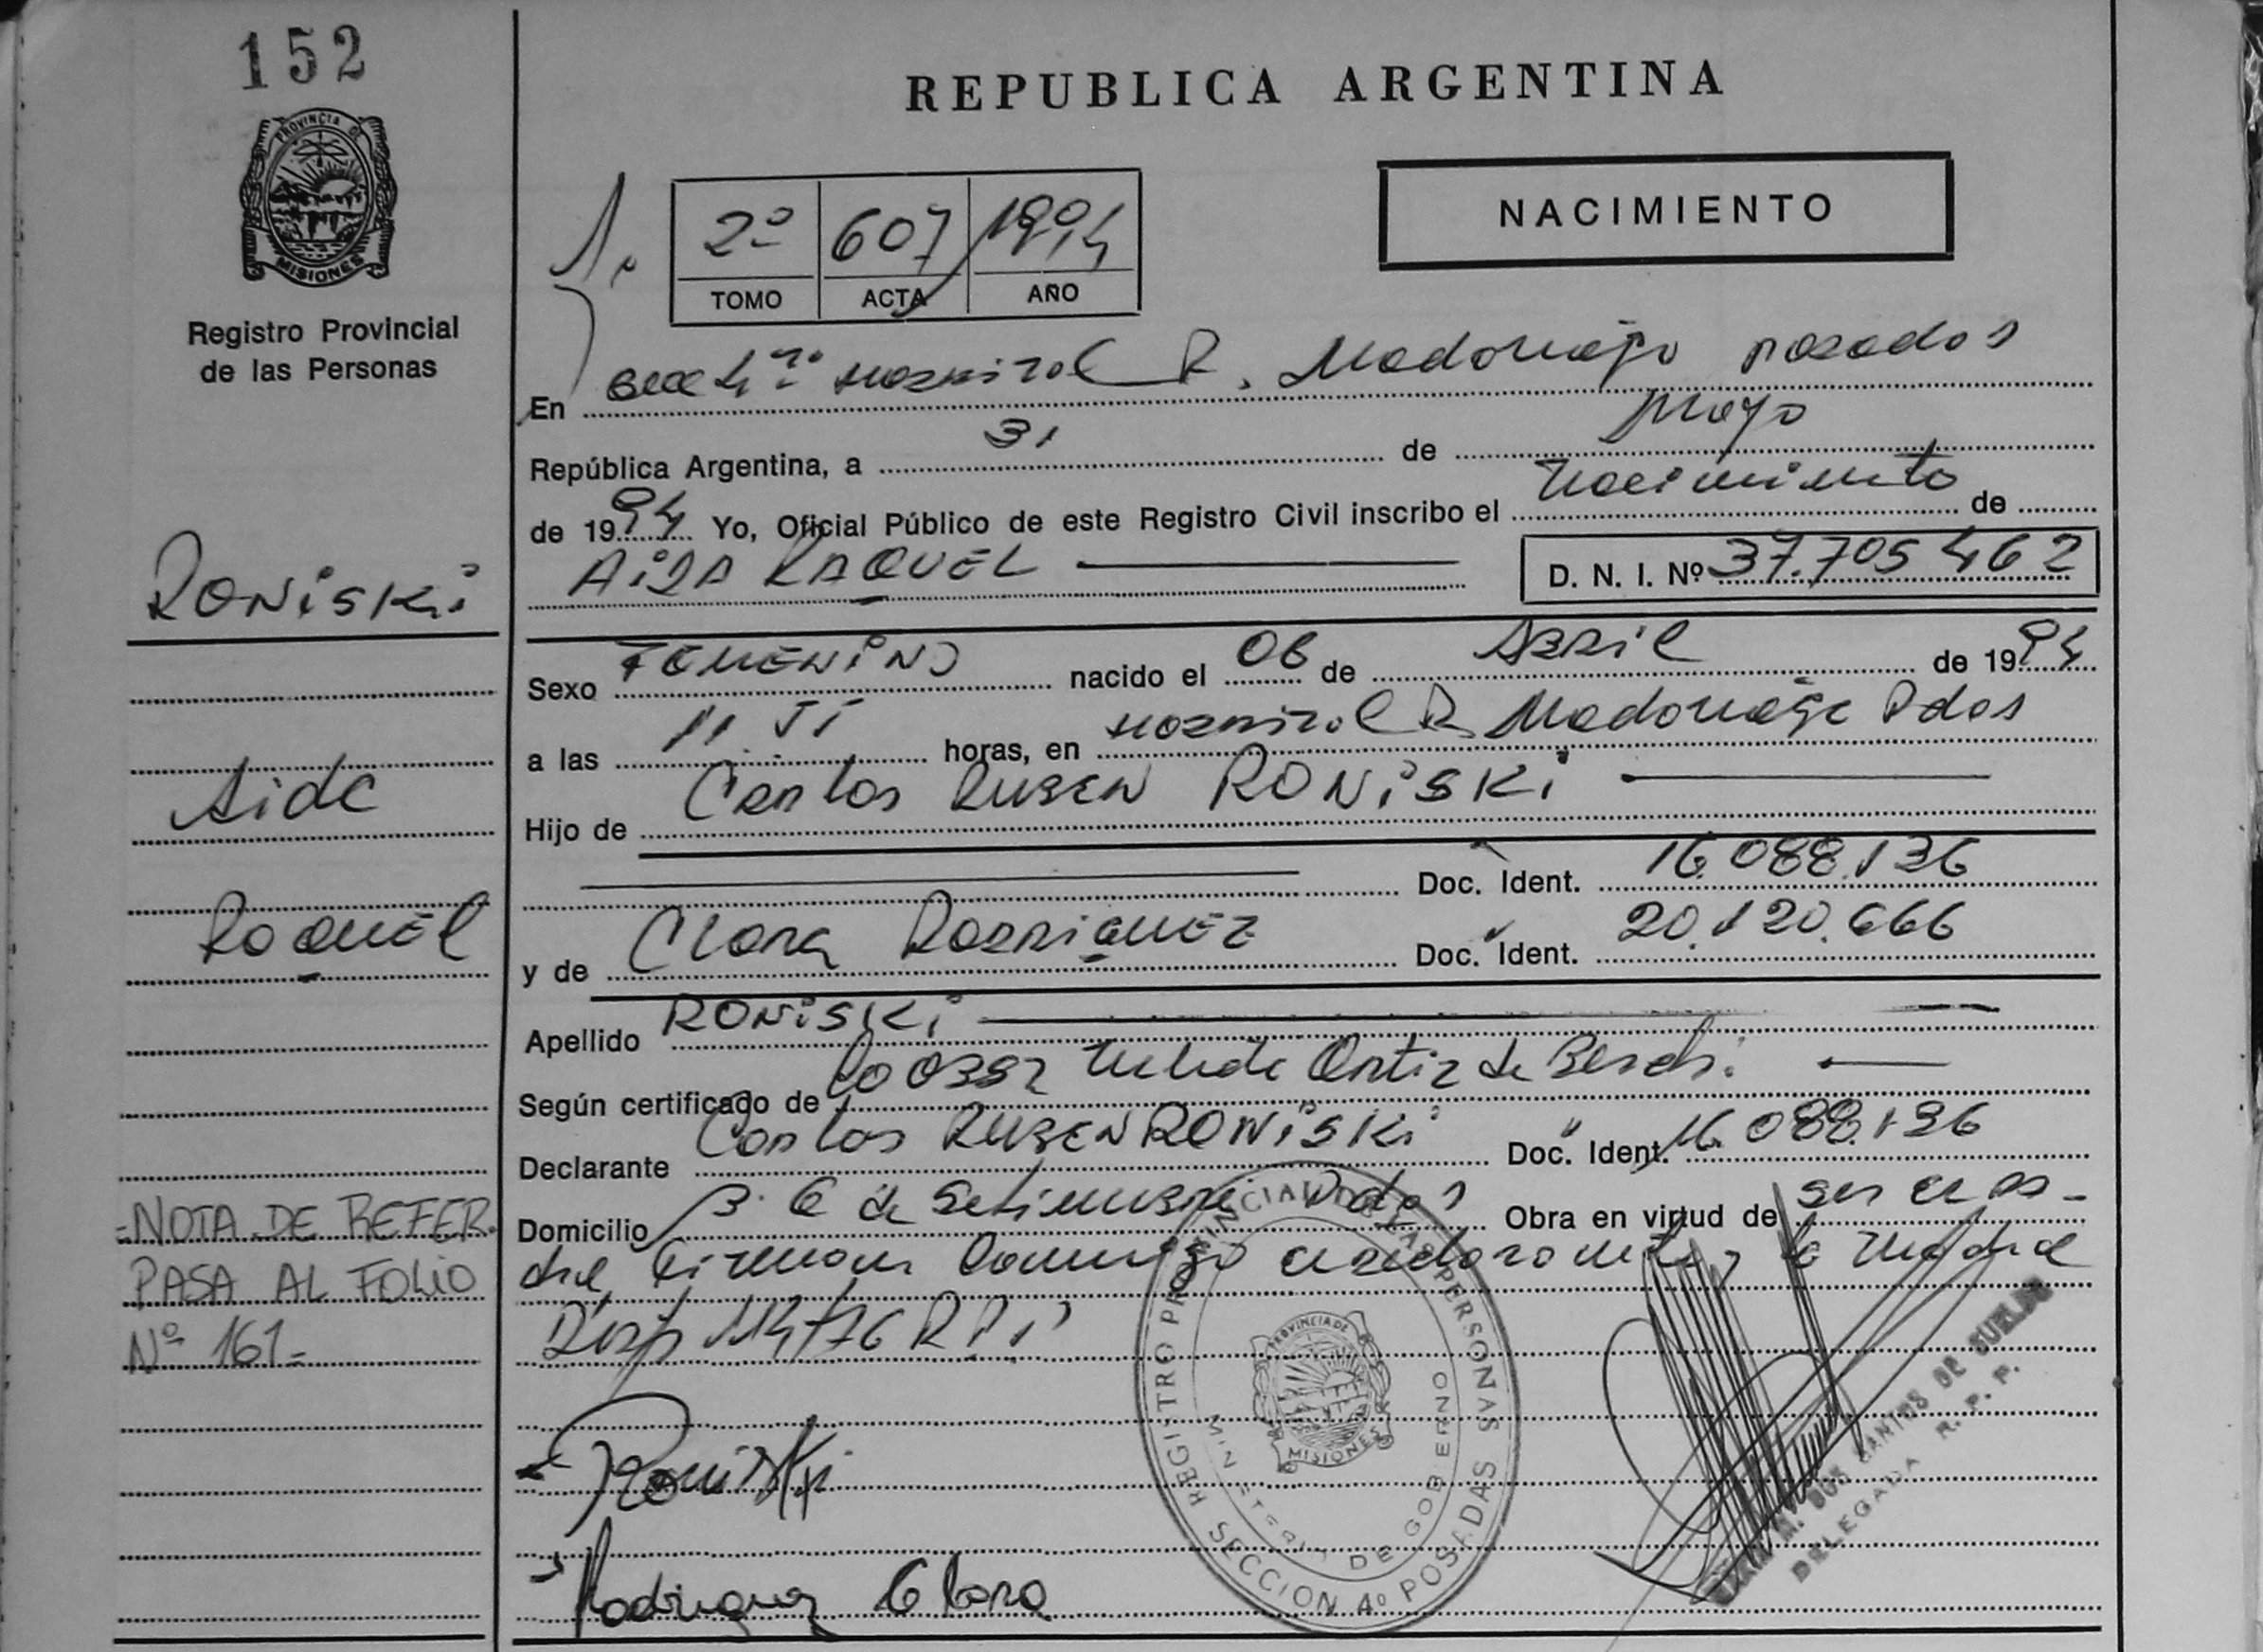 152
PROVINCIA DE
MISIONES
Registro Provincial
de las Personas
REPUBLICA ARGENTINA
2º 607 1994
TOMO ACTA AÑO
NACIMIENTO
En Secc 4ª Hospital R. Madariaga Posadas
República Argentina, a 31 de Mayo
de 1994 Yo, Oficial Público de este Registro Civil inscribo el Nacimiento de
AIDA RAQUEL D. N. I. Nº 37.705 462
RONiSKi
Aida
Raquel
Sexo FEMENINO nacido el 06 de Abril de 1994
a las horas, en Hospital R Madariaga Pdas
Hijo de Carlos RUBEN RONiSKi
Doc. Ident. 16.088.136
y de Clara Rodriguez Doc. Ident. 20.120.666
Apellido RONiSKi
Según certificado de Ortiz de
Declarante Carlos RUBEN RONiSKi Doc. Ident. 16.088.136
Domicilio B. 6 de Setiembre Pdas Obra en virtud de ser el pa-
dre Firman conmigo el declarante y la madre
Disp 114/76 R.P.P
=NOTA DE REFER.
PASA AL FOLIO
Nº 161-
Roniski
Rodriguez Clara
REGISTRO PROVINCIAL DE LAS PERSONAS
MINISTERIO DE GOBIERNO
PROVINCIA DE
MISIONES
SECCION 4º POSADAS
DOS SANTOS DE
DELEGADA R. P. P.